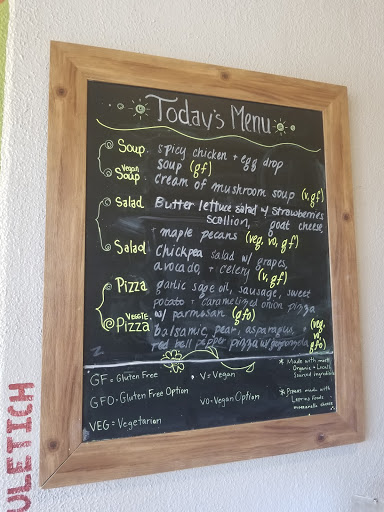 Today's Menu
Soup spicy chicken + egg drop
soup (gf)
Vegan
Soup cream of mushroom soup (v, gf)
Salad Butter lettuce salad w/ strawberries
scallion, goat cheese,
maple pecans (veg, vo, gf)
Salad chickpea salad w/ grapes,
avocado, + celery (v, gf)
Pizza garlic sage oil, sausage, sweet
potato + caramelized onion pizza
w/ parmesan (gfo)
VEGGIE
Pizza balsamic, pear, asparagus, + (veg,
red bell pepper pizza w/ gorgonzola vo, gfo)
GF = Gluten Free • V = Vegan
GFO = Gluten Free Option VO = Vegan Option
VEG = Vegetarian
* Made with most
Organic + Local
Sourced Ingredients
* Pizzas made with
Leprino Foods
mozzarella cheese
ULETICH